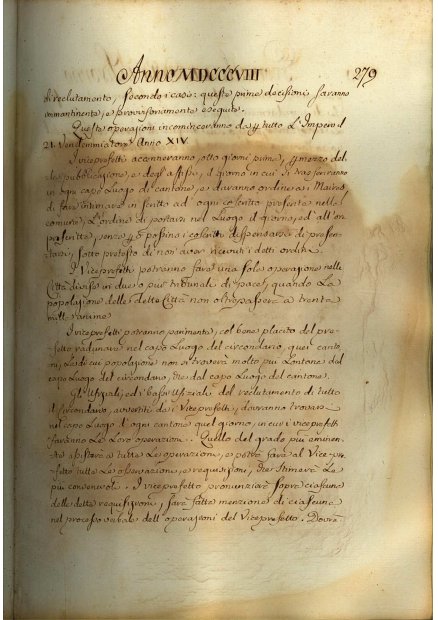 Anno MDCCCVIII 279
di reclutamento, secondo i casi: queste prime decisioni saranno
immantinente, e provisionamente eseguite.
Queste operazioni incominceranno da tutto L'Impero il
21. Vendemmiatore Anno XIV.
I viceprefetti accenneranno, otto giorni prime, mezzo del-
la pubblicazione, e degl'affissi, il giorno in cui si trasferiranno
in ogni capo Luogo di cantone, e daranno ordine ai Maires,
di fare intimare in scritto ad ogni coscritto presente nella
comune, L'ordine di portarsi nel Luogo, il giorno, ed all'ora
prescritta, senza possino i coscritti dispensarsi di presen-
tarsi, sotto pretesto di non aver ricevuti detti ordini.
I Viceprefetti potranno fare una sola operazione nelle
Città divise in due o più tribunali di pace, quando La
popolazione delle dette Città non oltrepasserà a trenta
mille anime
I viceprefetti potranno parimente, col bene placito del pre-
fetto radunare nel capo Luogo del circondario, quei canto-
ni, Le di cui popolazione non si troverà molto più Lontane dal
capo Luogo del circondario, che dal capo Luogo del cantone.
Gl'Uffiziali, ed i bassi Uffiziali del reclutamento di tutto
il circondario, avvertiti da i Viceprefetti, dovranno trovarsi
nel capo Luogo d'ogni cantone quel giorno, in cui i viceprefetti
faranno Le Loro operazioni. Quello del grado più eminen-
te assisterà a tutte Le operazione, e potrà fare al Vice-pre-
fetto tutte Le osservazione, e requisizioni, che stimerà Le
più convenevoli. I viceprefetto pronunziarà sopra ciascune
delle dette requisizioni, sarà fatta menzione di ciascune
nel processo verbale dell'operazioni del Viceprefetto. Dovrà